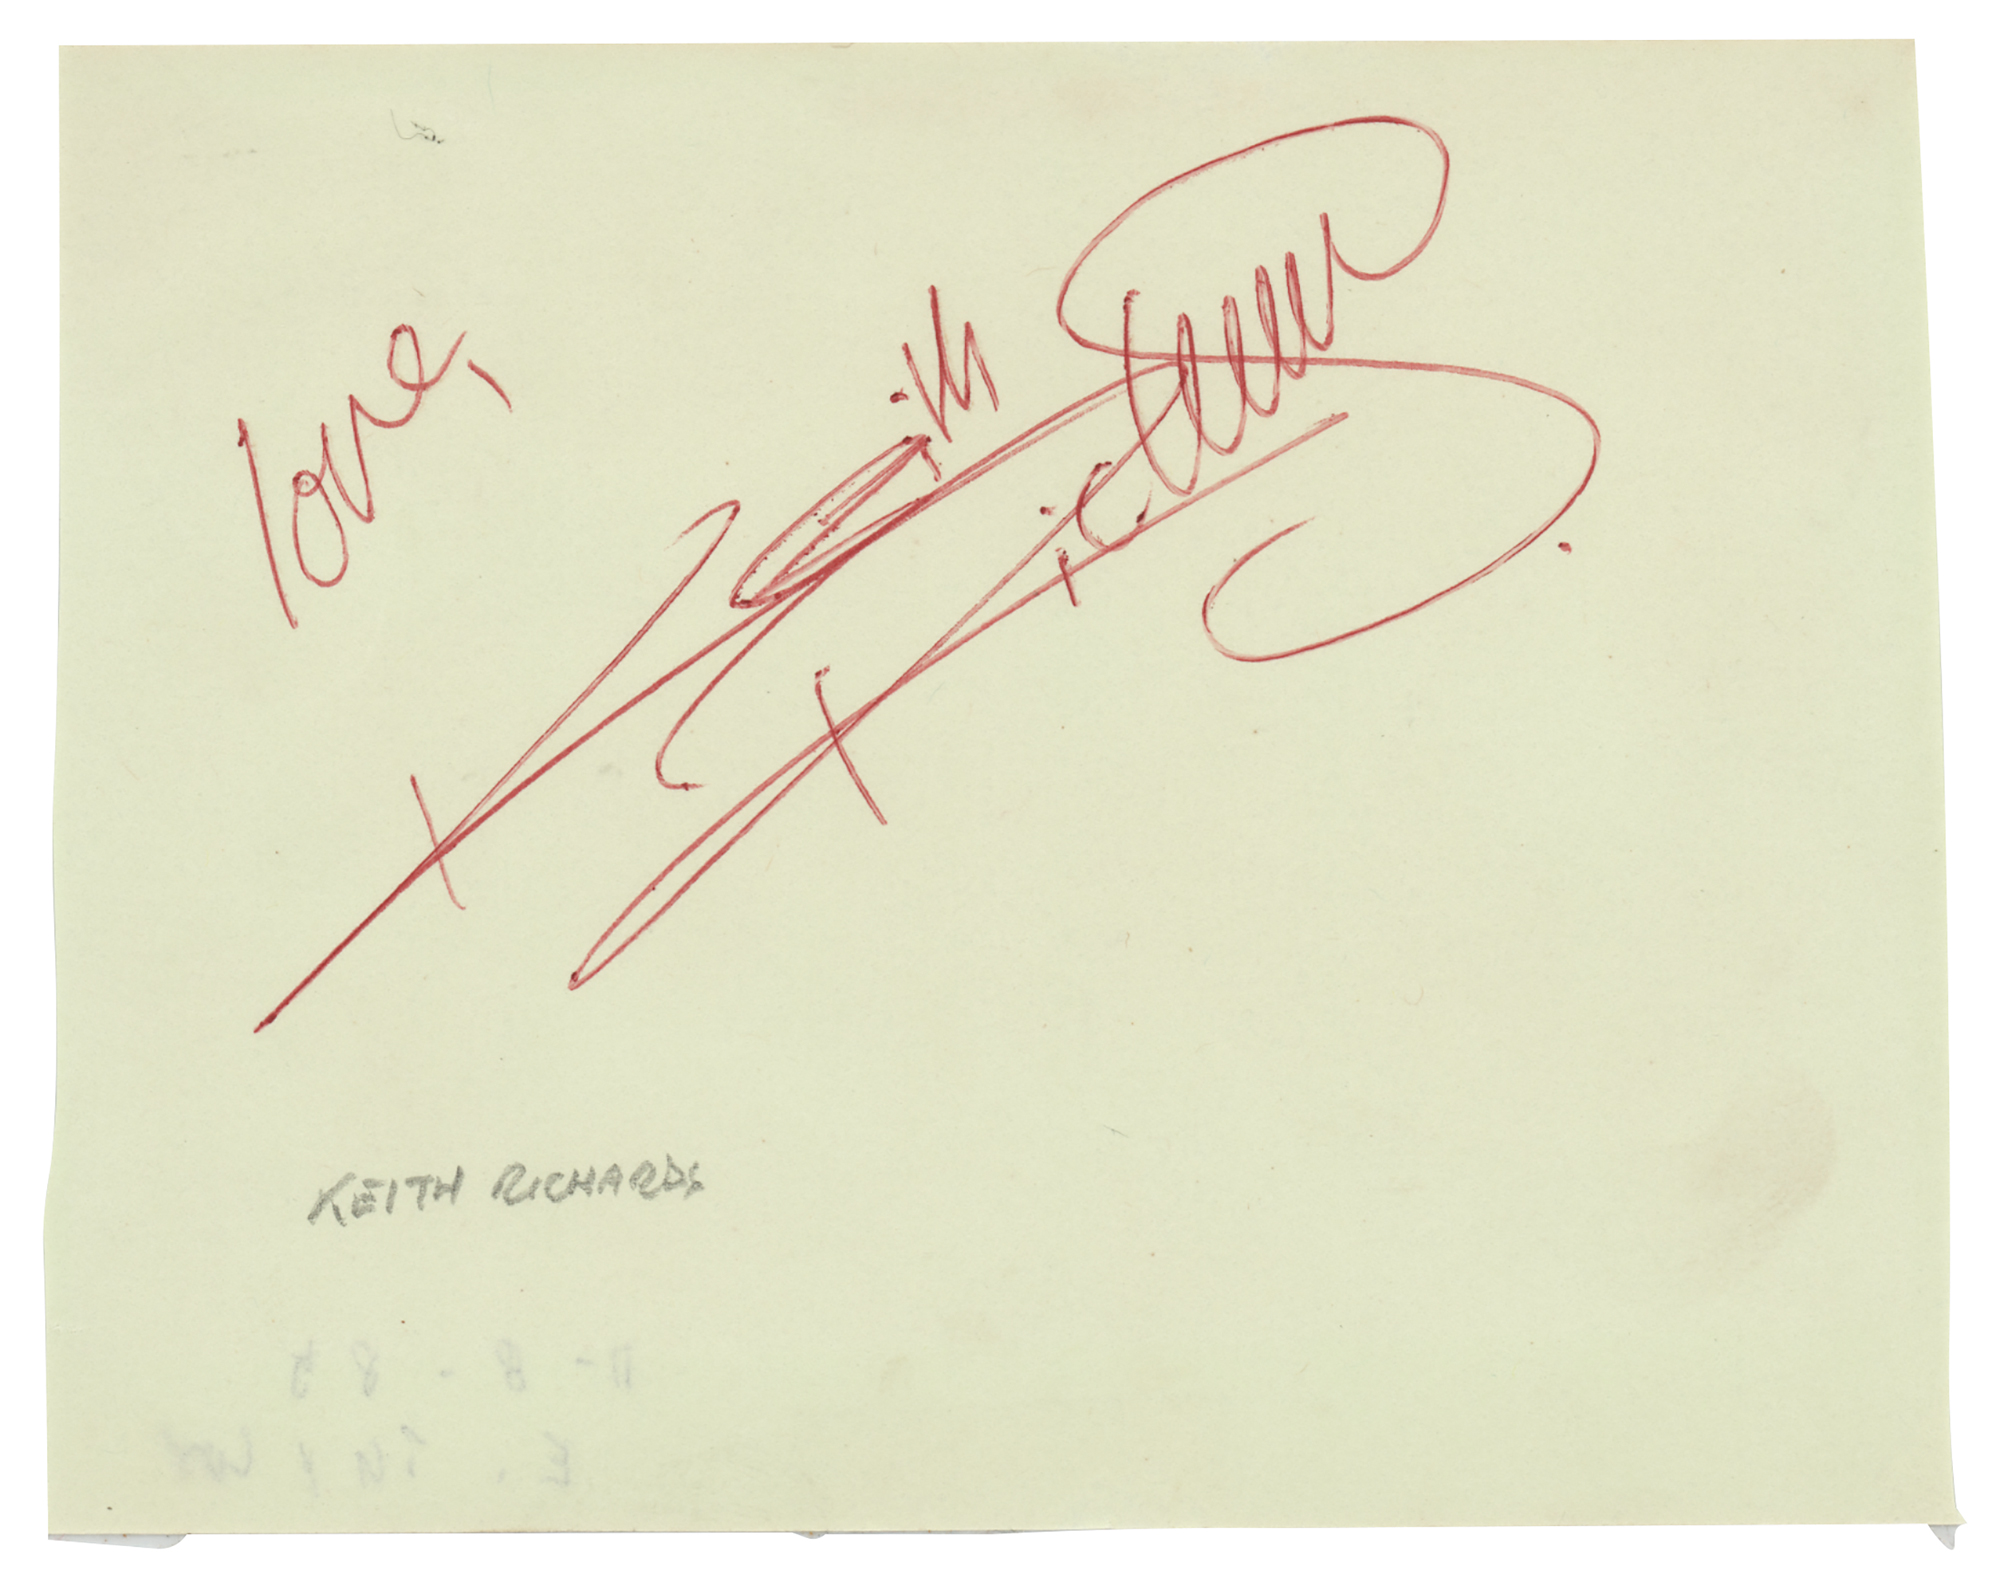 love,
Keith Richards
KEITH RICHARDS
11-8-85